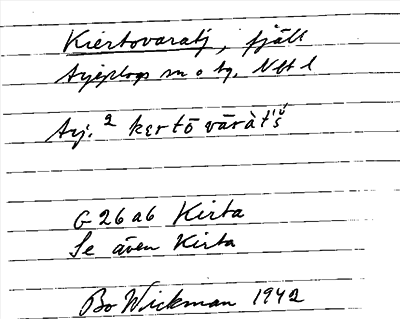 Kiertovaratj, fjäll
Arjeplogs sn o tg. Nbt l
Arj. ² kertō vāràt́š́
G 26 a6 Kirta
Se även Kirta
Bo Wickman 1942